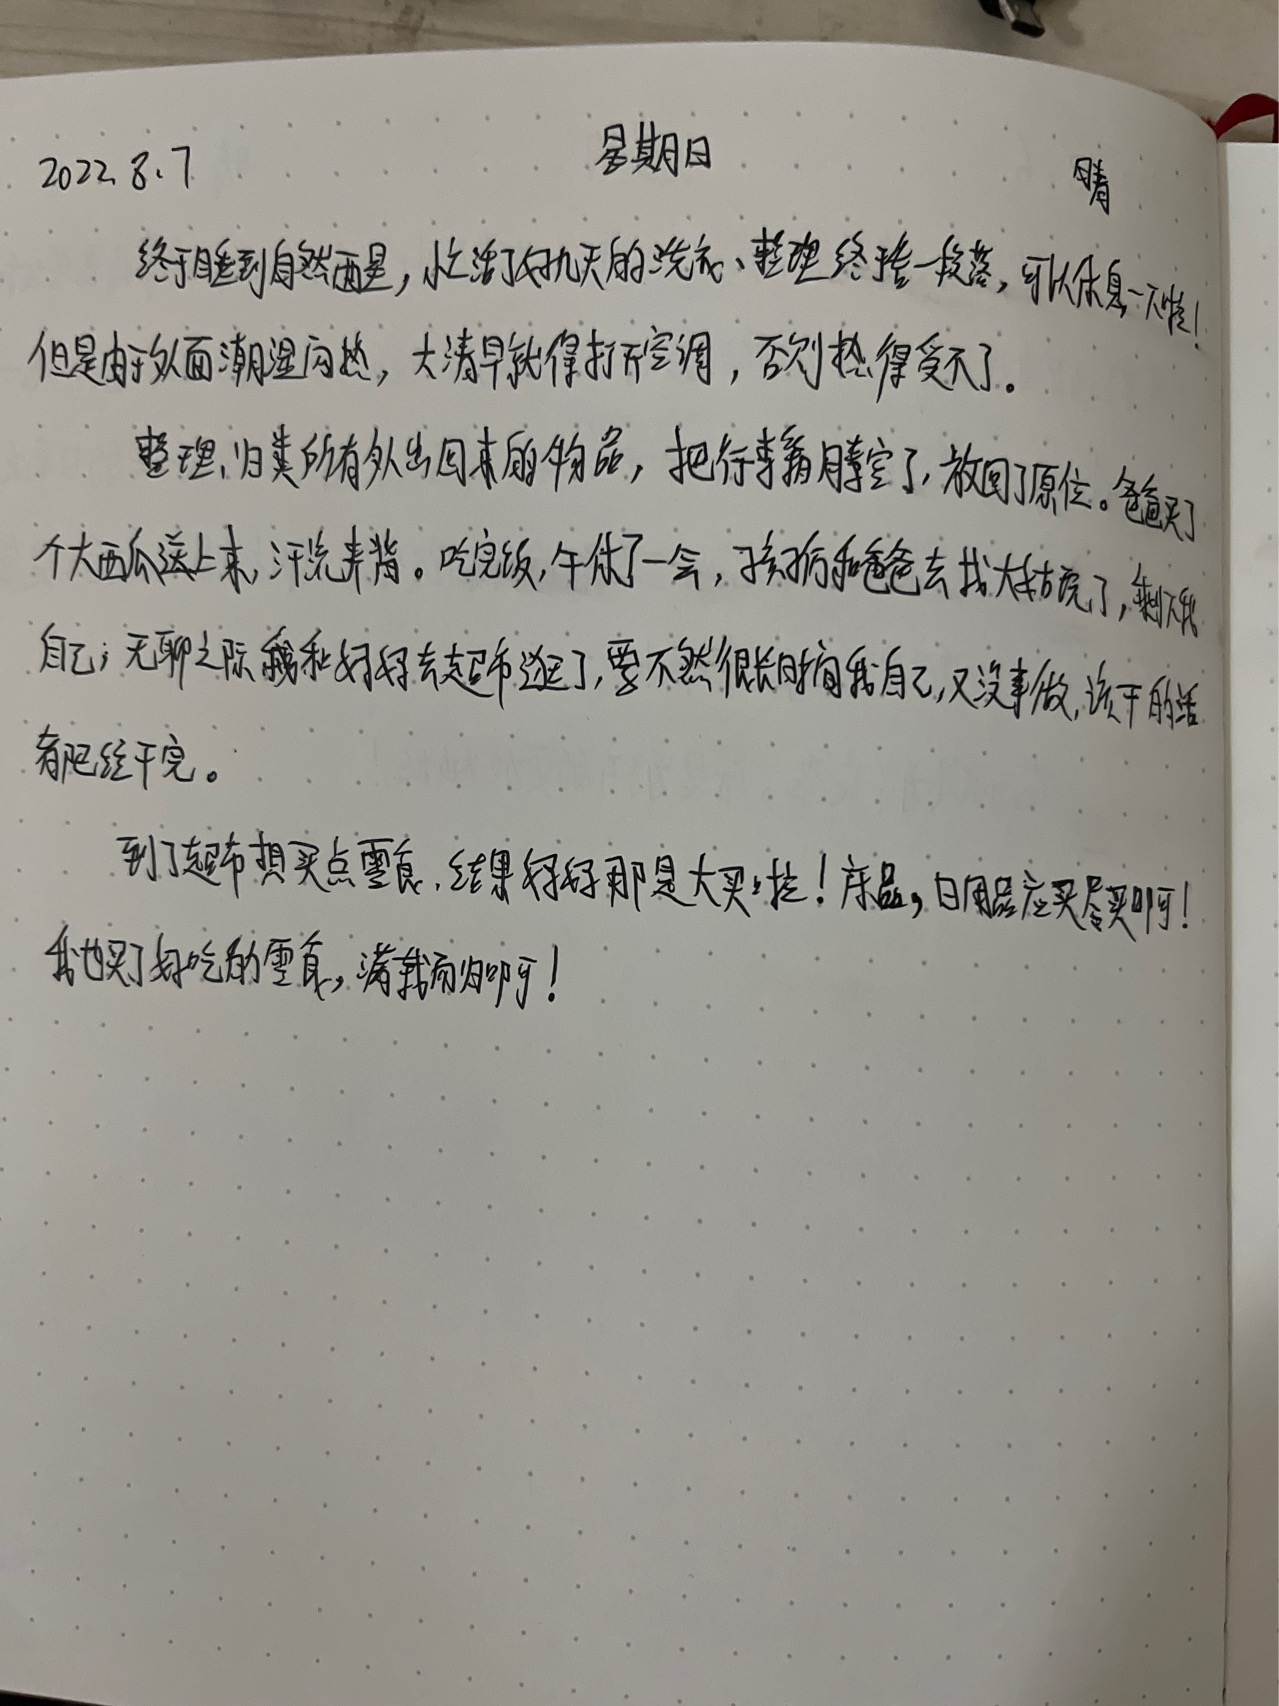 2022.8.7 星期日 晴
终于睡到自然醒，忙活了好几天的洗衣、整理终于告一段落，可以休息一下啦！
但是由于外面潮湿闷热，大清早就得打开空调，否则热得受不了。
整理、归类所有外出回来的物品，把行李箱腾空了，放回了原位。爸爸买了
个大西瓜送上来，汗流浃背。吃完饭，午休了一会，孩子和爸爸去找大姑玩了，剩下我
自己；无聊之际我和好好去超市逛了，要不然很长时间我自己，又没事做，该干的活
都已经干完。
到了超市想买点零食，结果好好那是大买一批！床品，日用品应买尽买啊！
我也买了好吃的零食，满载而归啊！